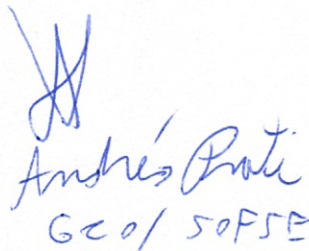 Andrés Prati
GCO/ SOFSE